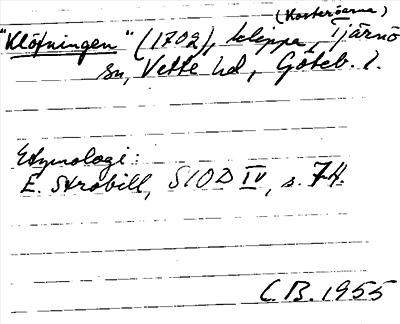 (Kosteröarna)
"Klöfningen" (1702), klippa, Tjärnö
sn, Vette hd, Göteb. l.
Etymologi:
E. Strobill, SIOD IV, s. 74.
C.B. 1955